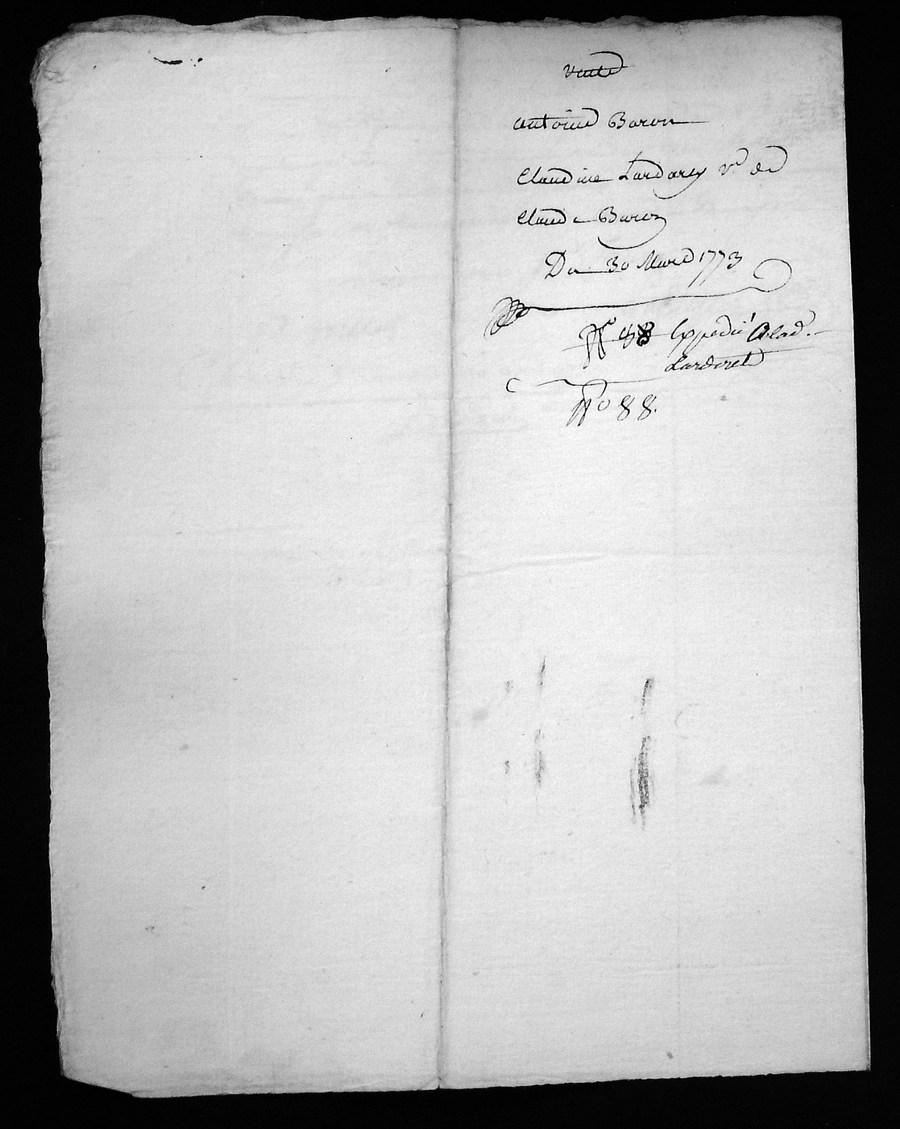 Vente
Antoine Baron
Claudine Lardarey Ve de
Claude Baron
Du 30 Mars 1773
No 88 Expedié Alad.
Lardoret
No 88.